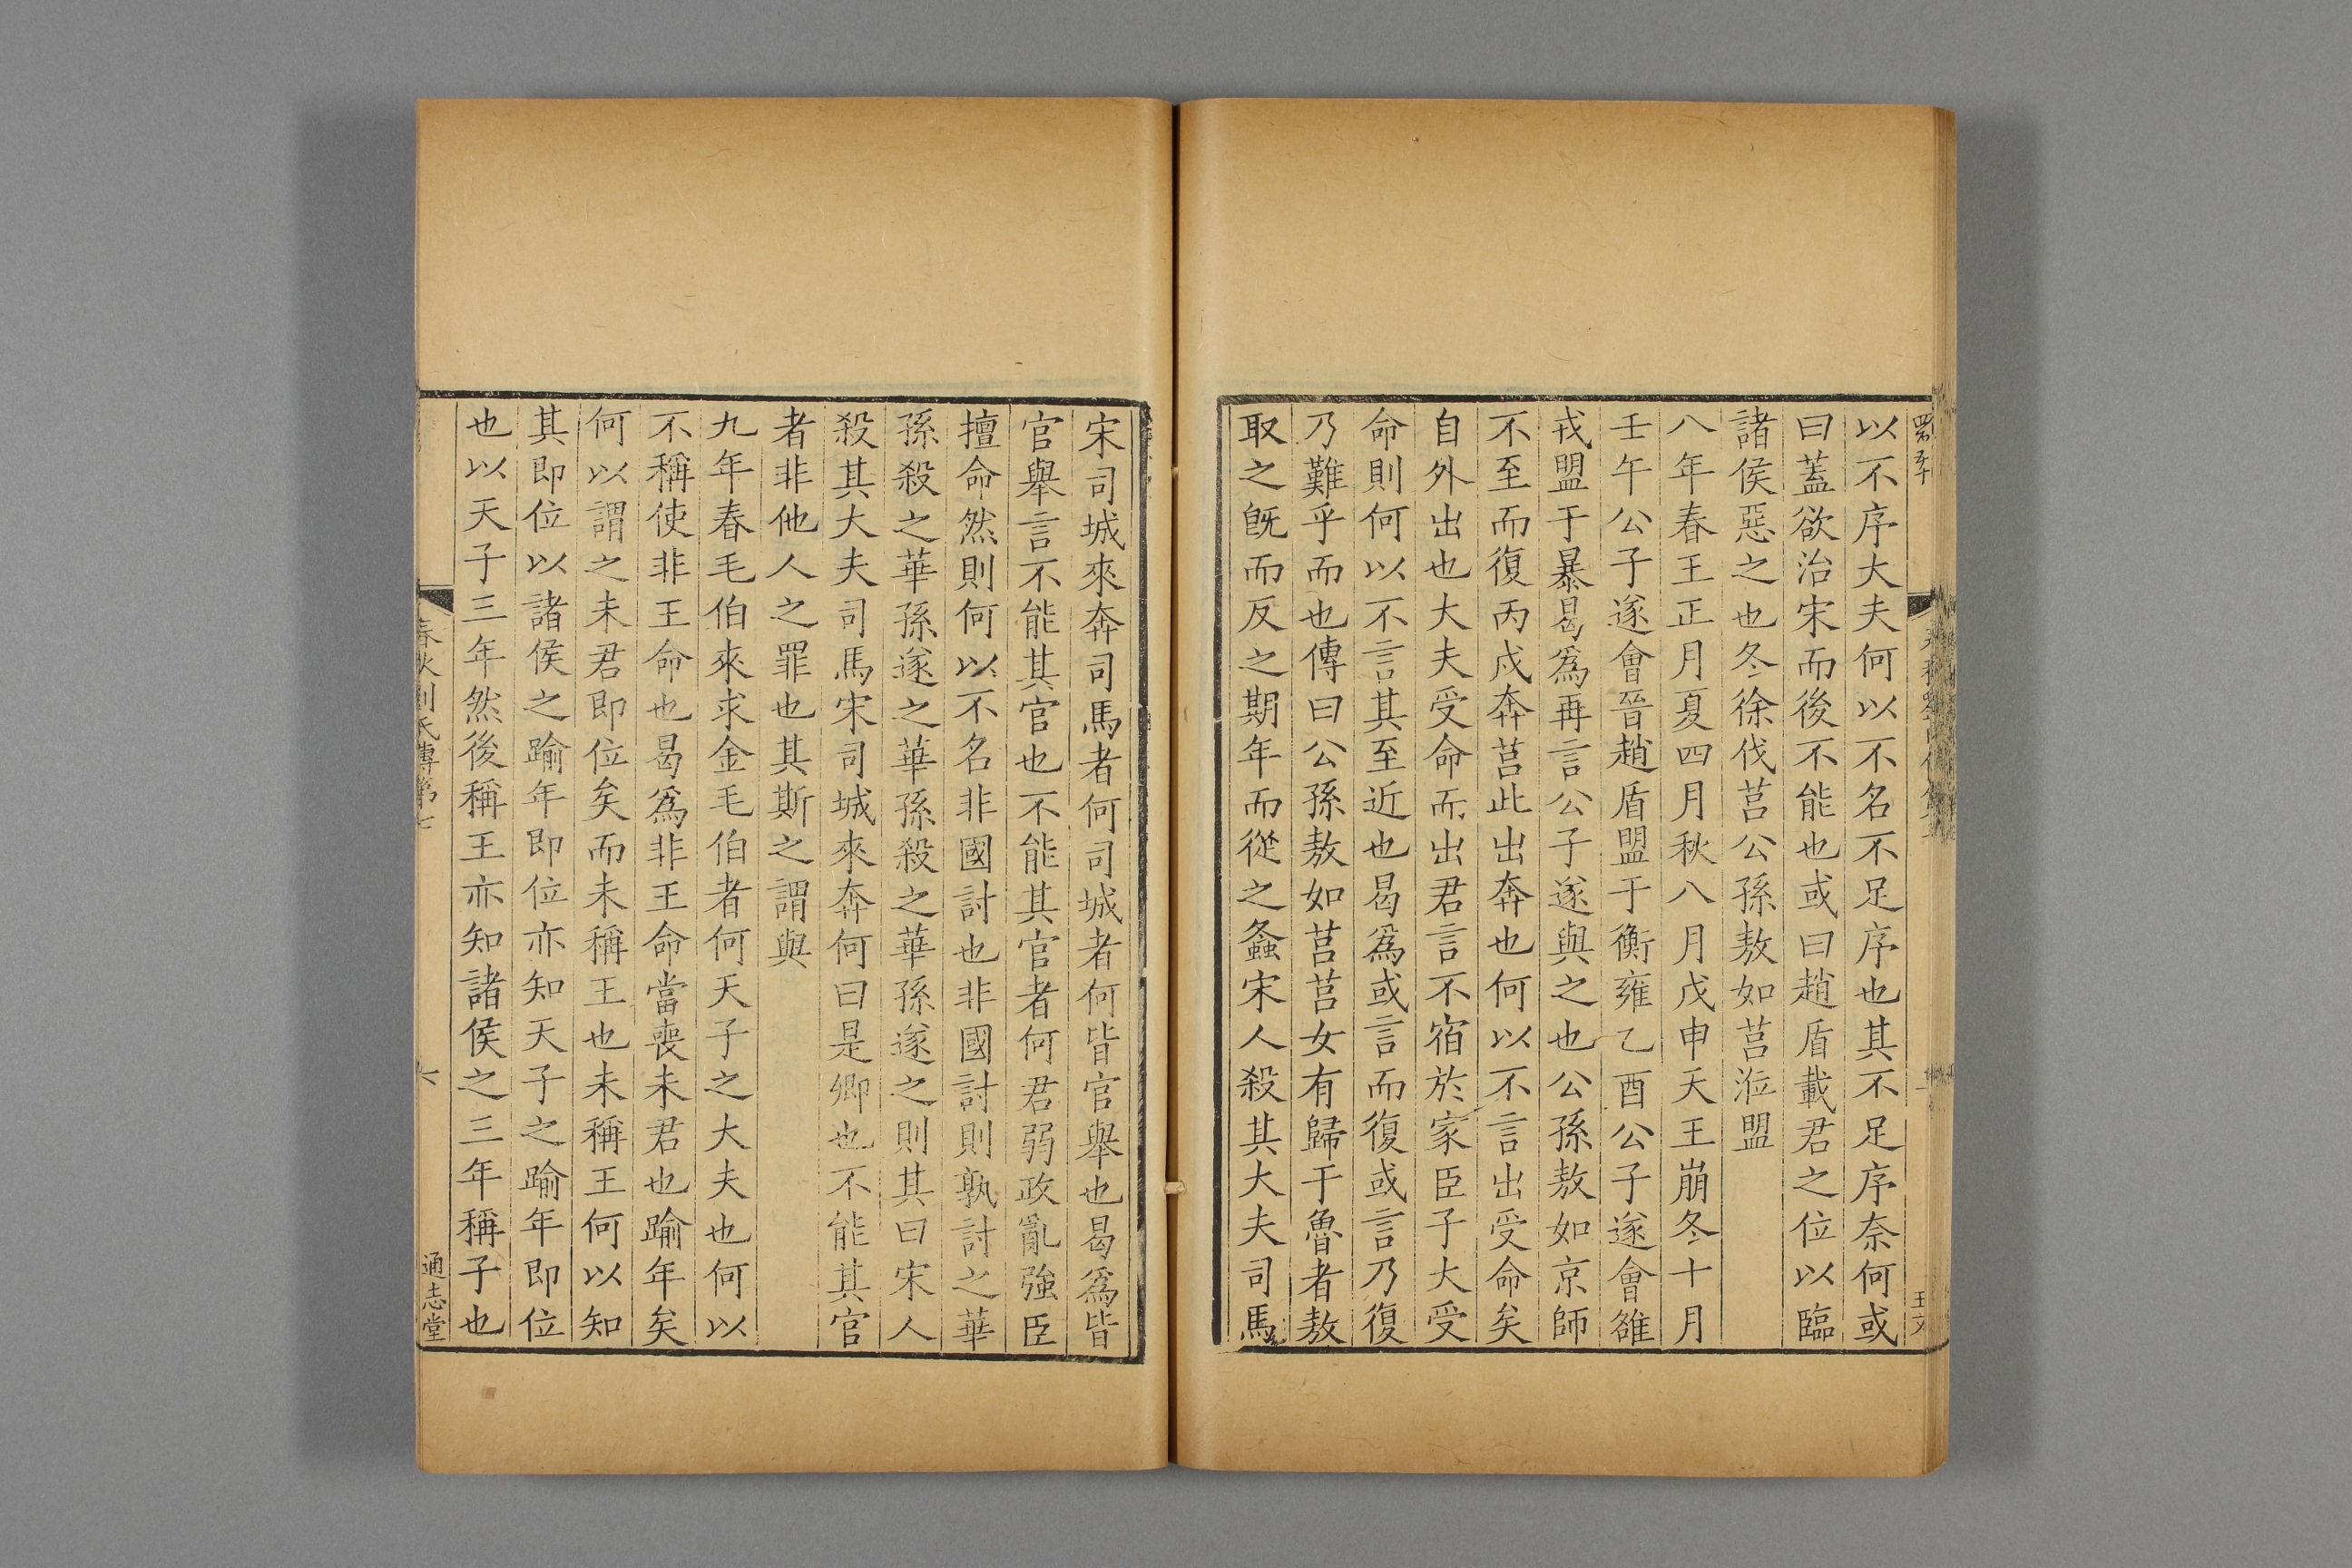 以不序大夫何以不名不足序也其不足序奈何或
曰蓋欲治宋而後不能也或曰趙盾載君之位以臨
諸侯惡之也冬徐伐莒公孫敖如莒涖盟
八年春王正月夏四月秋八月戊申天王崩冬十月
壬午公子遂會晉趙盾盟于衡雍乙酉公子遂會雒
戎盟于暴曷爲再言公子遂與之也公孫敖如京師
不至而復丙戌奔莒此出奔也何以不言出受命矣
自外出也大夫受命而出君言不宿於家臣子大受
命則何以不言其至近也曷爲或言而復或言乃復
乃難乎而也傳曰公孫敖如莒莒女有歸于魯者敖
取之旣而反之期年而從之螽宋人殺其大夫司馬
宋司城來奔司馬者何司城者何皆官舉也曷爲皆
官舉言不能其官也不能其官者何君弱政亂強臣
擅命然則何以不名非國討也非國討則孰討之華
孫殺之華孫遂之華孫殺之華孫遂之則其曰宋人
殺其大夫司馬宋司城來奔何曰是卿也不能其官
者非他人之罪也其斯之謂與
九年春毛伯來求金毛伯者何天子之大夫也何以
不稱使非王命也曷爲非王命當喪未君也踰年矣
何以謂之未君即位矣而未稱王也未稱王何以知
其即位以諸侯之踰年即位亦知天子之踰年即位
也以天子三年然後稱王亦知諸侯之三年稱子也
春秋劉氏傳第七
六
通志堂